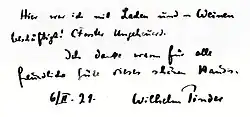 Hier war ich mit Laden und – Weinen
beschäftigt!
Ich danke warm für alle
freundliche Güte dieses schönen Hauses.
6/II. 21. Wilhelm Pinder